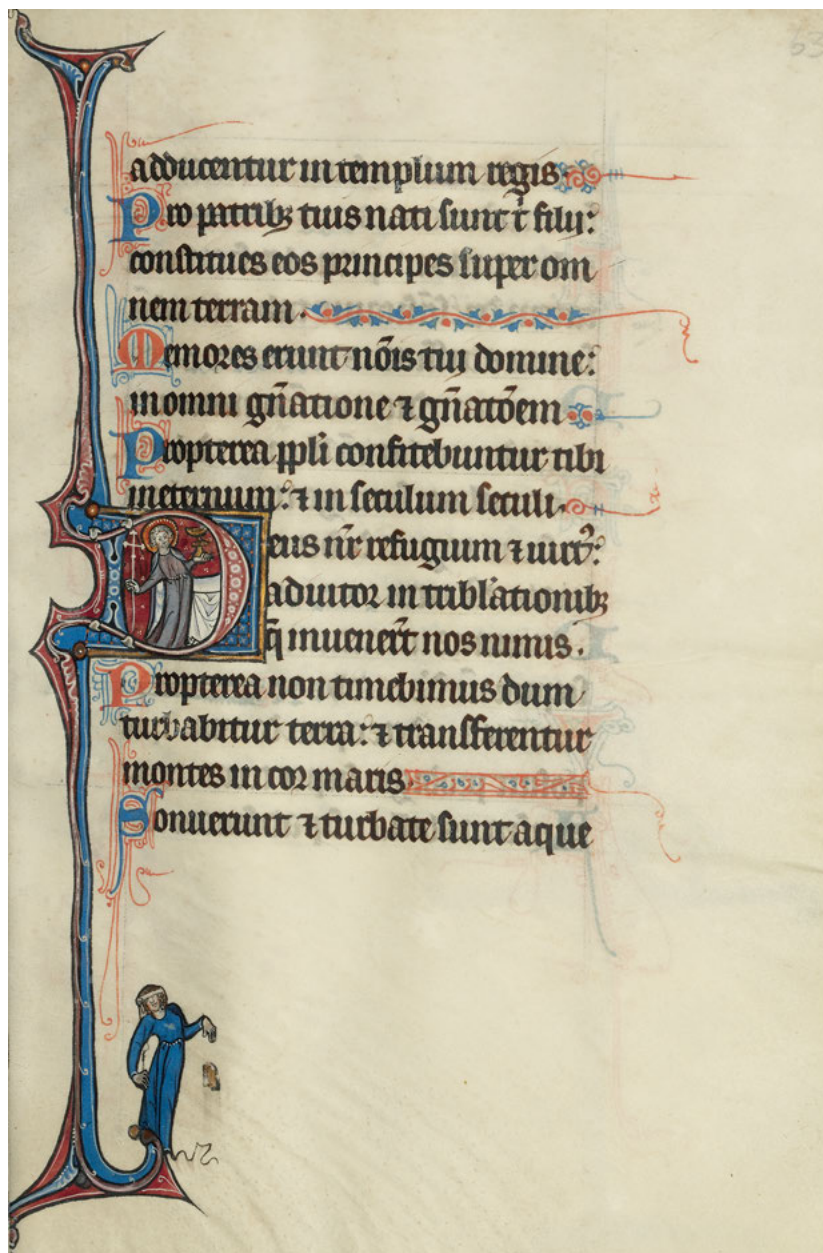 adducentur in templum regis.
Pro patrib; tuis nati sunt t̄ filij:
constitues eos principes super om
nem terram.
Memores erunt nōis tui domine:
in omni gn̄atione ⁊ gn̄atōem
Propterea ppl̄i confitebuntur tibi
in eternum: ⁊ in seculum seculi.
Deus nr̄ refugium ⁊ uirt᷒:
adiutor in tribl̄ationib;
q̄ inuener̄t nos nimis.
Propterea non timebimus dum
turbabitur terra: ⁊ transferentur
montes in cor maris.
Sonuerunt ⁊ turbate sunt aque